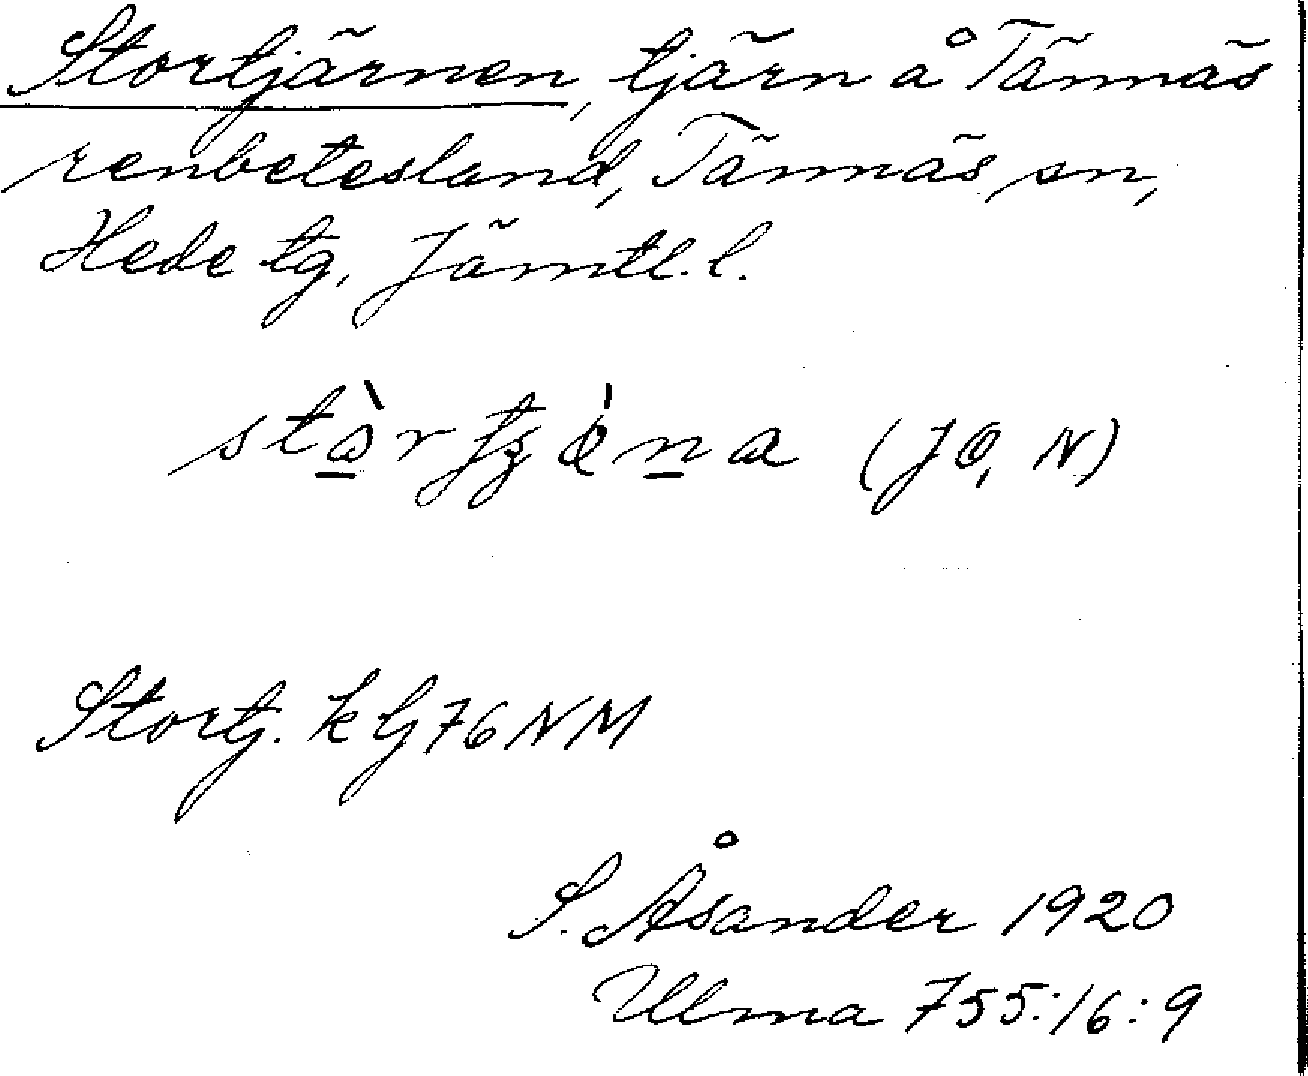 Stortjärnen, tjärn å Tännäs
renbetesland, Tännäs sn,
Hede tg, Jämtl. l.
(JO, N)
Stortj. k G 76 NM
S. Åsander 1920
Ulma 755:16:9